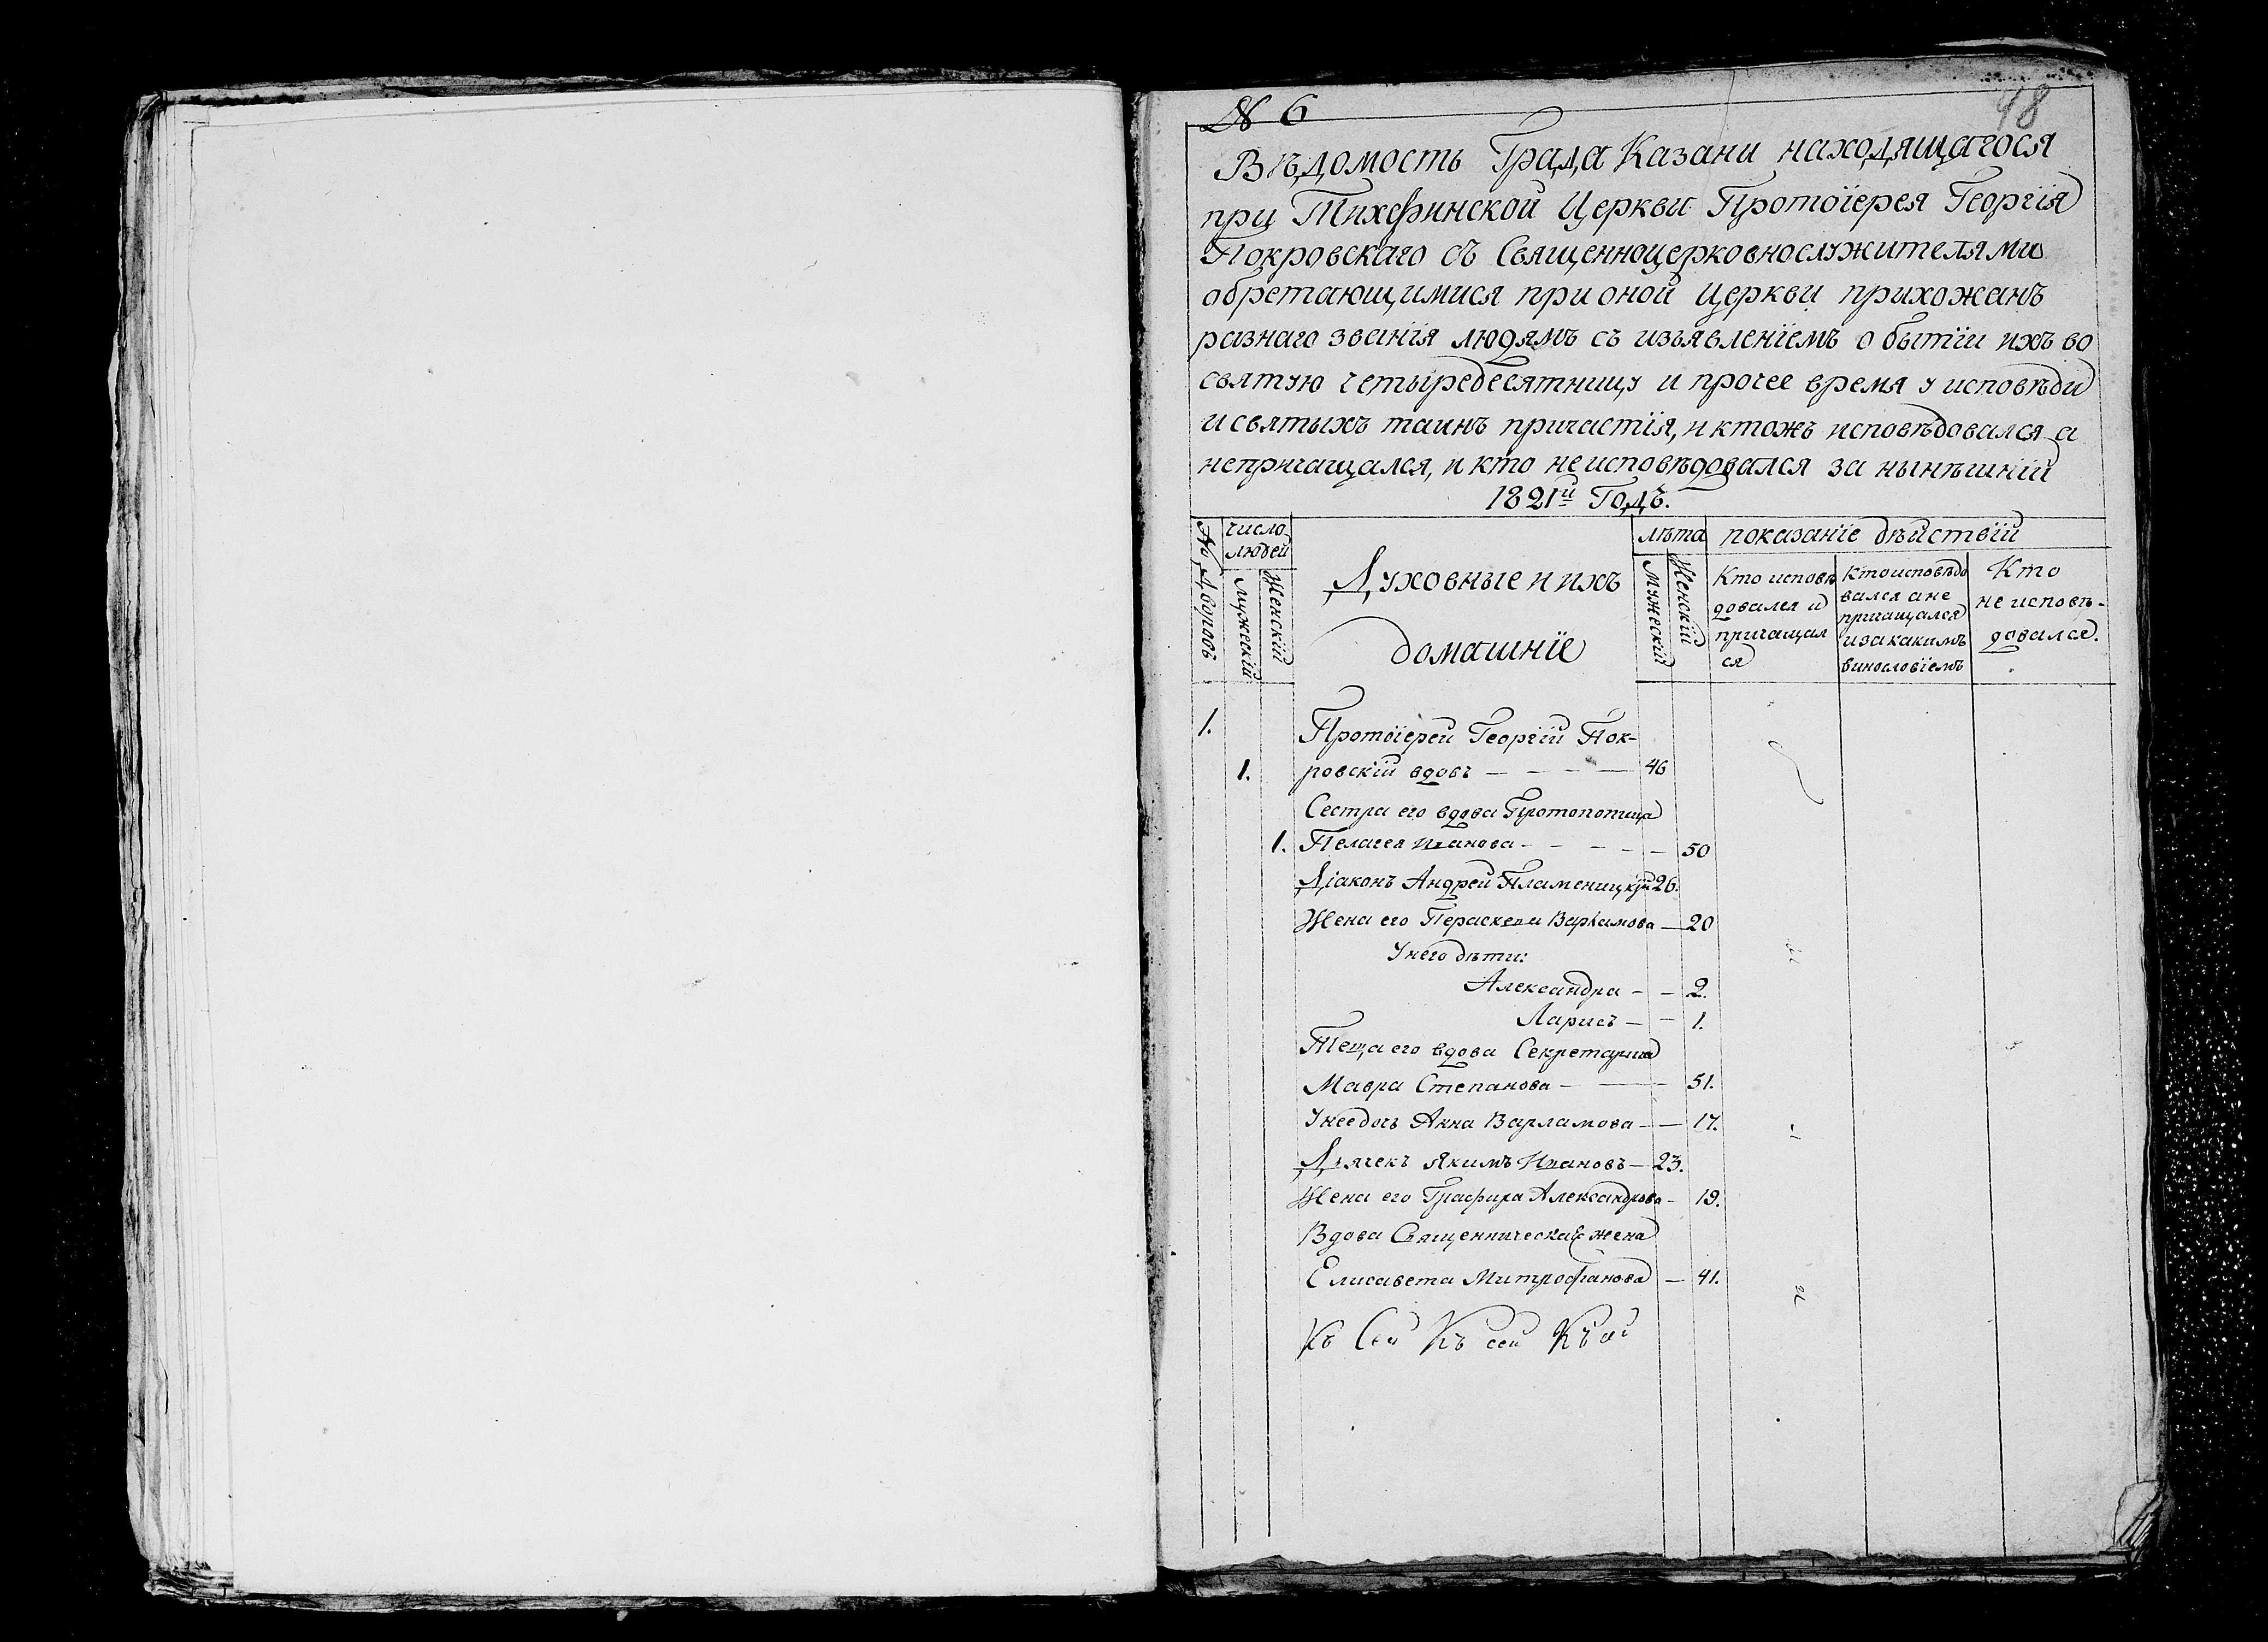 № 6
48
Вѣдомость Града Казани находящагося
при Тихфинской Церкви Протоіерея Георгія
Покровскаго съ Священноцерковнослужителями
обретающимися при оной церкви прихожанъ
разнаго званія людямъ съ изъявленіемъ о бытіи ихъ во
святую четыредесятницу и прочее время у исповѣди
и святыхъ таинъ причастія, и ктожъ исповѣдовался а
непричащался, и кто не исповѣдовался за нынѣшній
1821й Годъ.
№ Дворовъ
число людей
Мужескій
Женскій
Духовные и ихъ
домашніе
лѣта
Мужескій
Женскій
показаніе дѣйствій
Кто исповѣ
довался и
причащал
ся
Кто исповѣдо
вался а не
причащался
и за какимъ
винословіемъ
Кто
не исповѣ-
довался.
1.
Протоіерей Георгій Пок-
1. ровскій вдовъ 46
Сестра его вдова Протопопица
1. Пелагея Иванова 50
Діаконъ Андрей Пламеницкій 26.
Жена его Параскева Варламова 20
У него дѣти:
Александра 2.
Ларисъ 1.
Теща его вдова Секретарша
Мавра Степанова 51.
У нее дочь Анна Варламова 17.
Дьячекъ Якимъ Ивановъ 23.
Жена его Глафира Александрова 19.
Вдова Священническая жена
Елисавета Митрофанова 41.
Къ Сей Къ сей Къ